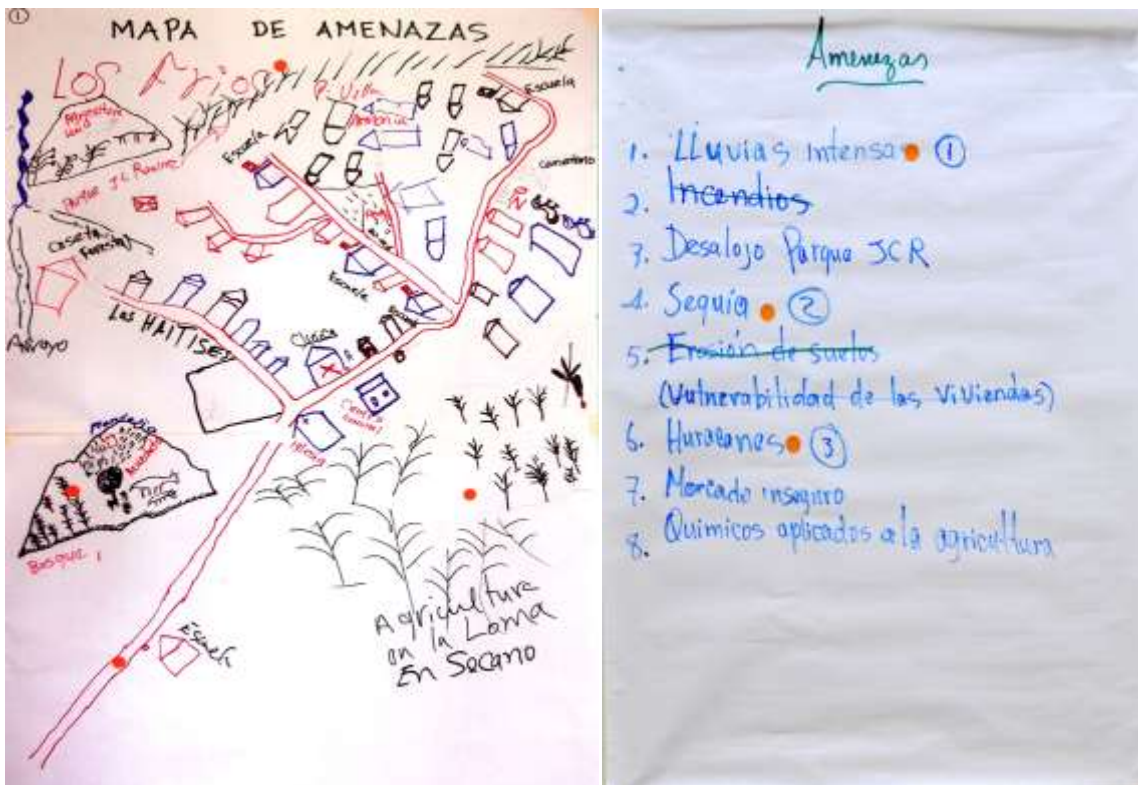 1
MAPA DE AMENAZAS
LOS
P. Villa
Escuela
Escuela
Cementerio
Parque J C Ramirez
Caseta
Forestal
Arroyo
Escuela
Los HAITISES
Clinica
Centro
Comunal
Iglesia
Bosque 1
Escuela
Agricultura
en la Loma
En Secano
Amenezas
1. LLuvias intensa 1
2. Incendios
3. Desalojo Parque JCR
4. Sequia 2
5. Erosión de suelos
(Vulnerabilidad de las Viviendas)
6. Huracanes 3
7. Mercado inseguro
8. Quimicos aplicados a la agricultura